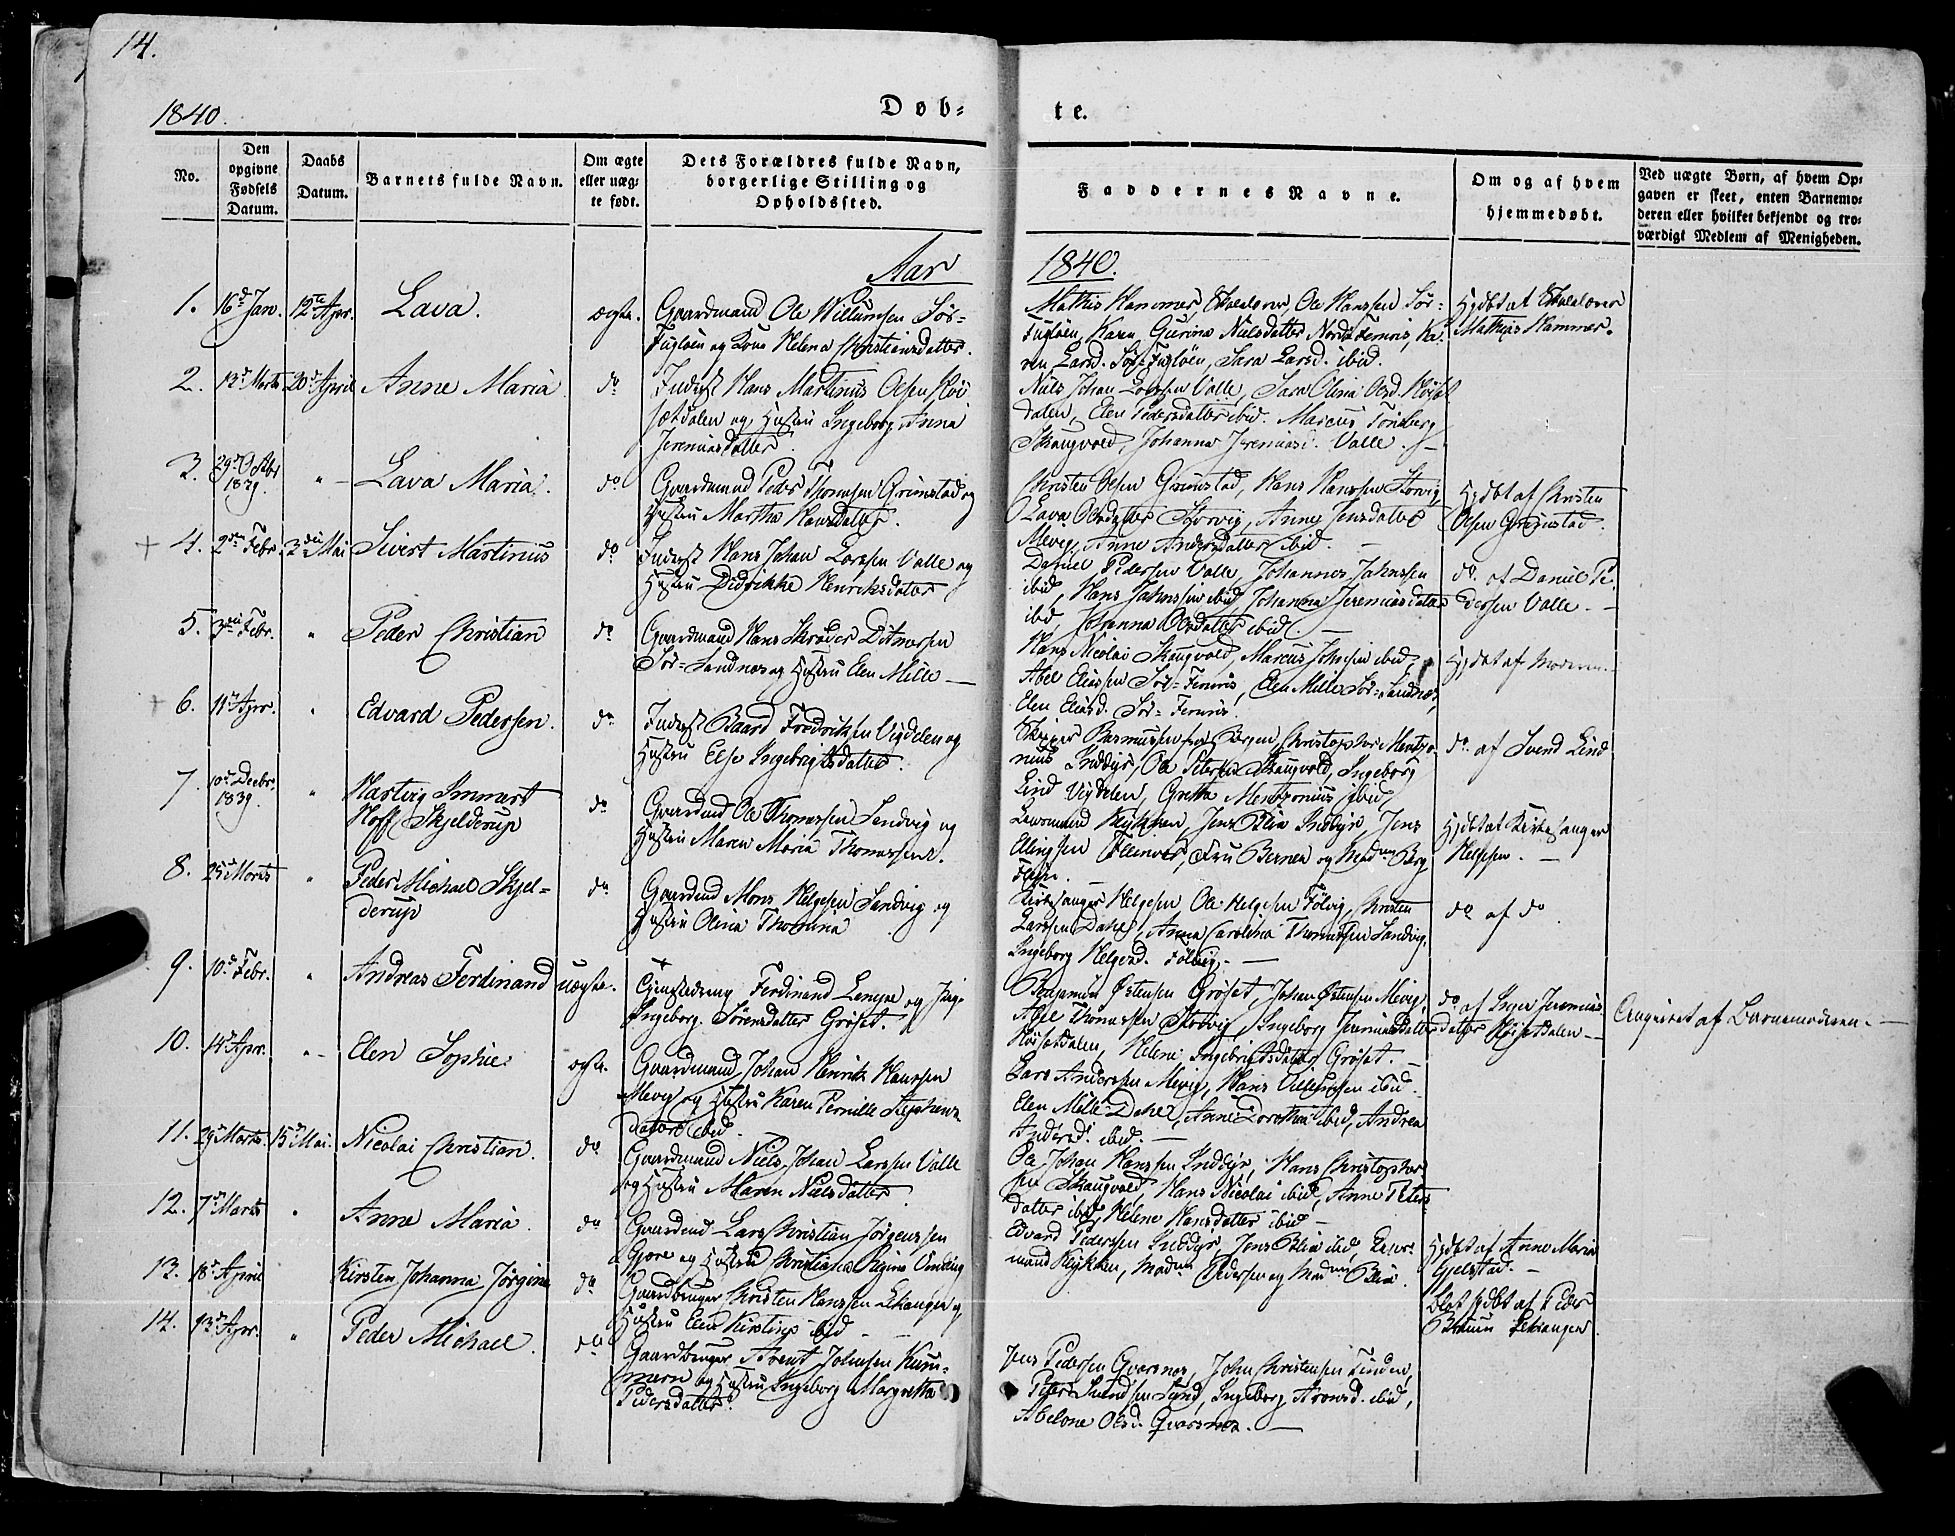 14.
1840.
Døb-
te.
No.
Den opgivne Fødsels Datum.
Daabs Datum.
Barnets fulde Navn.
Om ægte eller uægte født.
Dets Forældres fulde Navn, borgerlige Stilling og Opholdssted.
Faddernes Navne.
Om og af hvem hjemmedøbt.
Ved uægte Børn, af hvem Opgaven er skeet, enten Barnemoderen eller hvilket bekjendt og troværdigt Medlem af Menigheden.
Aar 1840.
1. 16d Jan. 12te Apr. Lava. ægte.
Gaardmand Ole Willumsen Sør-
Fugløen og Kone Helena Christiansdatter.
Mathis Hammer, Skolelærer, Ole Hanssen Sør-
Fugløen, Karn Gurina Nielsdatter Nordre Femris, Ka-
ren Larsd. Sør-Fugløen, Sara Larsd. ibid.
Hjdbt af Skolelærer
Mathias Hammer.
2. 13d Marts 20d April Anne Maria do
Inderst Hans Martinus Olsen Høi-
sætdalen og Hustru Ingeborg Anna
Jeremiasdatter.
Niels Johan Larssen Valle, Sara Olina Olsd. Høiset-
dalen, Elen Pedersdatter ibid. Marcus Tønsberg
Skaugvold, Johanna Jeremiasd. Valle.
3. 29de Octbr 1839. " Lava Maria. do
Gaardmand Peder Thomsen Grimstad og
Hustru Martha Hansdatter.
Christen Olsen Grimstad, Hans Hanssen Storvig,
Lava Olsdatter Storvig, Anne Jensdatter
Mevig, Anne Andersdatter ibid.
Hjdbt af Christen
Olsen Grimstad.
4. 2den Febr. 3die Mai Sivert Martinus do
Inderst Hans Johan Larssen Valle og
Hustru Didrikke Henriksdatter
Daniel Pedersen Valle, Johannes Johnssen
ibid, Hans Johnssen ibid, Johanna Jeremiasdatter
ibid, Johanna Olsdatter ibid.
do. af Daniel Pe-
dersen Valle.
5. 3die Febr. " Peder Christian do
Gaardmand Hans Skrøder Ditmersen
Sør-Sandnes og Hustru Elen Mille
Hans Nicolai Skaugvold, Marcus Johnsen ibid,
Abel Eliassen Sør-Femris, Elen Mille Sør-Sandnes,
Elen Eliasd. Sør-Femris.
Hjdbt af Moderen.
6. 11te Apr. " Edvard Pedersen. do
Inderst Baard Fredriksen Vigdelen og
Hustru Else Ingebrigtsdatter.
Skipper Rasmussen fra Bergen, Christopher Mentzo-
nius Inddyr, Ole Petersen Skaugvold, Ingeborg
Lind Vigdelen, Gretha Mentzonius ibid,
do. af Svend Lind
7. 10d Decbr. 1839. " Hartvig Immert
Hoff Skjelderup do
Gaardmd Ole Thomassen Sandvig og
Hustru Maren Maria Thomassen.
Lensmand Klykken, Jens Blix Inddyr, Jens
Ellingsen Fleinvær, Fru Berner og Madm Berg
Hjdbt af Kirkesanger
Helgesen.
8. 25d Marts " Peder Michael Skjel-
derup do
Gaardmd Mons Helgesen Sandvig og
Hustru Olina Thomina
Kirkesanger Helgesen, Ole Helgesen Følvig, Christen
Larssen Dahl, Anne Carolina Thomassen Sandvig,
Ingeborg Helgesd. Følvig.
do af do.
9. 10d Febr. " Andreas Ferdinand uægte.
Tjenestedreng Ferdinand Lempe og Pige
Ingeborg Sørensdatter Grøset.
Benjamin Østensen Grøset, Johan Østensen Mevig,
Abel Thomassen Storvig, Ingeborg Jeremiasdatter
Høisetdalen, Helena Ingebrigtsdatter Grøset.
do af Inger Jeremias-
datter Høisetdalen
Angivet af Barnemoderen.
10. 14d Apr. " Elen Sophie. ægte.
Gaardmand Johan Henrik Hanssen
Mevig og Hustru Karen Pernille Stephens-
datter ibid.
Lars Anderssen Mevig, Hans Villumsen ibid.
Elen Mille Dahl, Anne Dorothea ibid, Andrea
Andersd. ibid.
11. 29d Marts 15d Mai. Nicolai Christian. do
Gaardmand Niels Johan Larssen Valle
og Hustru Maren Nielsdatter
Ole Johan Hanssen Inddyr, Hans Christopher-
sen Skaugvold, Hans Nicolai ibid, Anne Peters-
datter ibid, Helene Hansdatter ibid
12. 7d Marts " Anne Maria. do
Gaardmd Lars Christian Jørgenssen
Gjøre og Hustru Christiana Regina Vinding
Edvard Pederssen Inddyr, Jens Blix ibid, Lens-
mand Klykken, Madm Pedersen og Madm Blix.
Hjdbt af Anne Maria
Gjelstad.
13. 18d April Kirsten Johanna Jørgine do
Gaardbruger Christen Hanssen Lekanger og
Hustru Elen Kirstine ibid
Blot hjdbt af Peder
Lekanger.
14. 13d Apr. " Peder Michael. do
Gaardbruger Arent Johnsen Kum-
mern og Hustru Ingeborg Margretha
Pedersdatter.
Jens Pedersen Qvarsnes, John Christensen Tinden,
Peter Svendsen Sund, Ingeborg Aronsd. ibid,
Abelone Olsd. Qvarsnes.